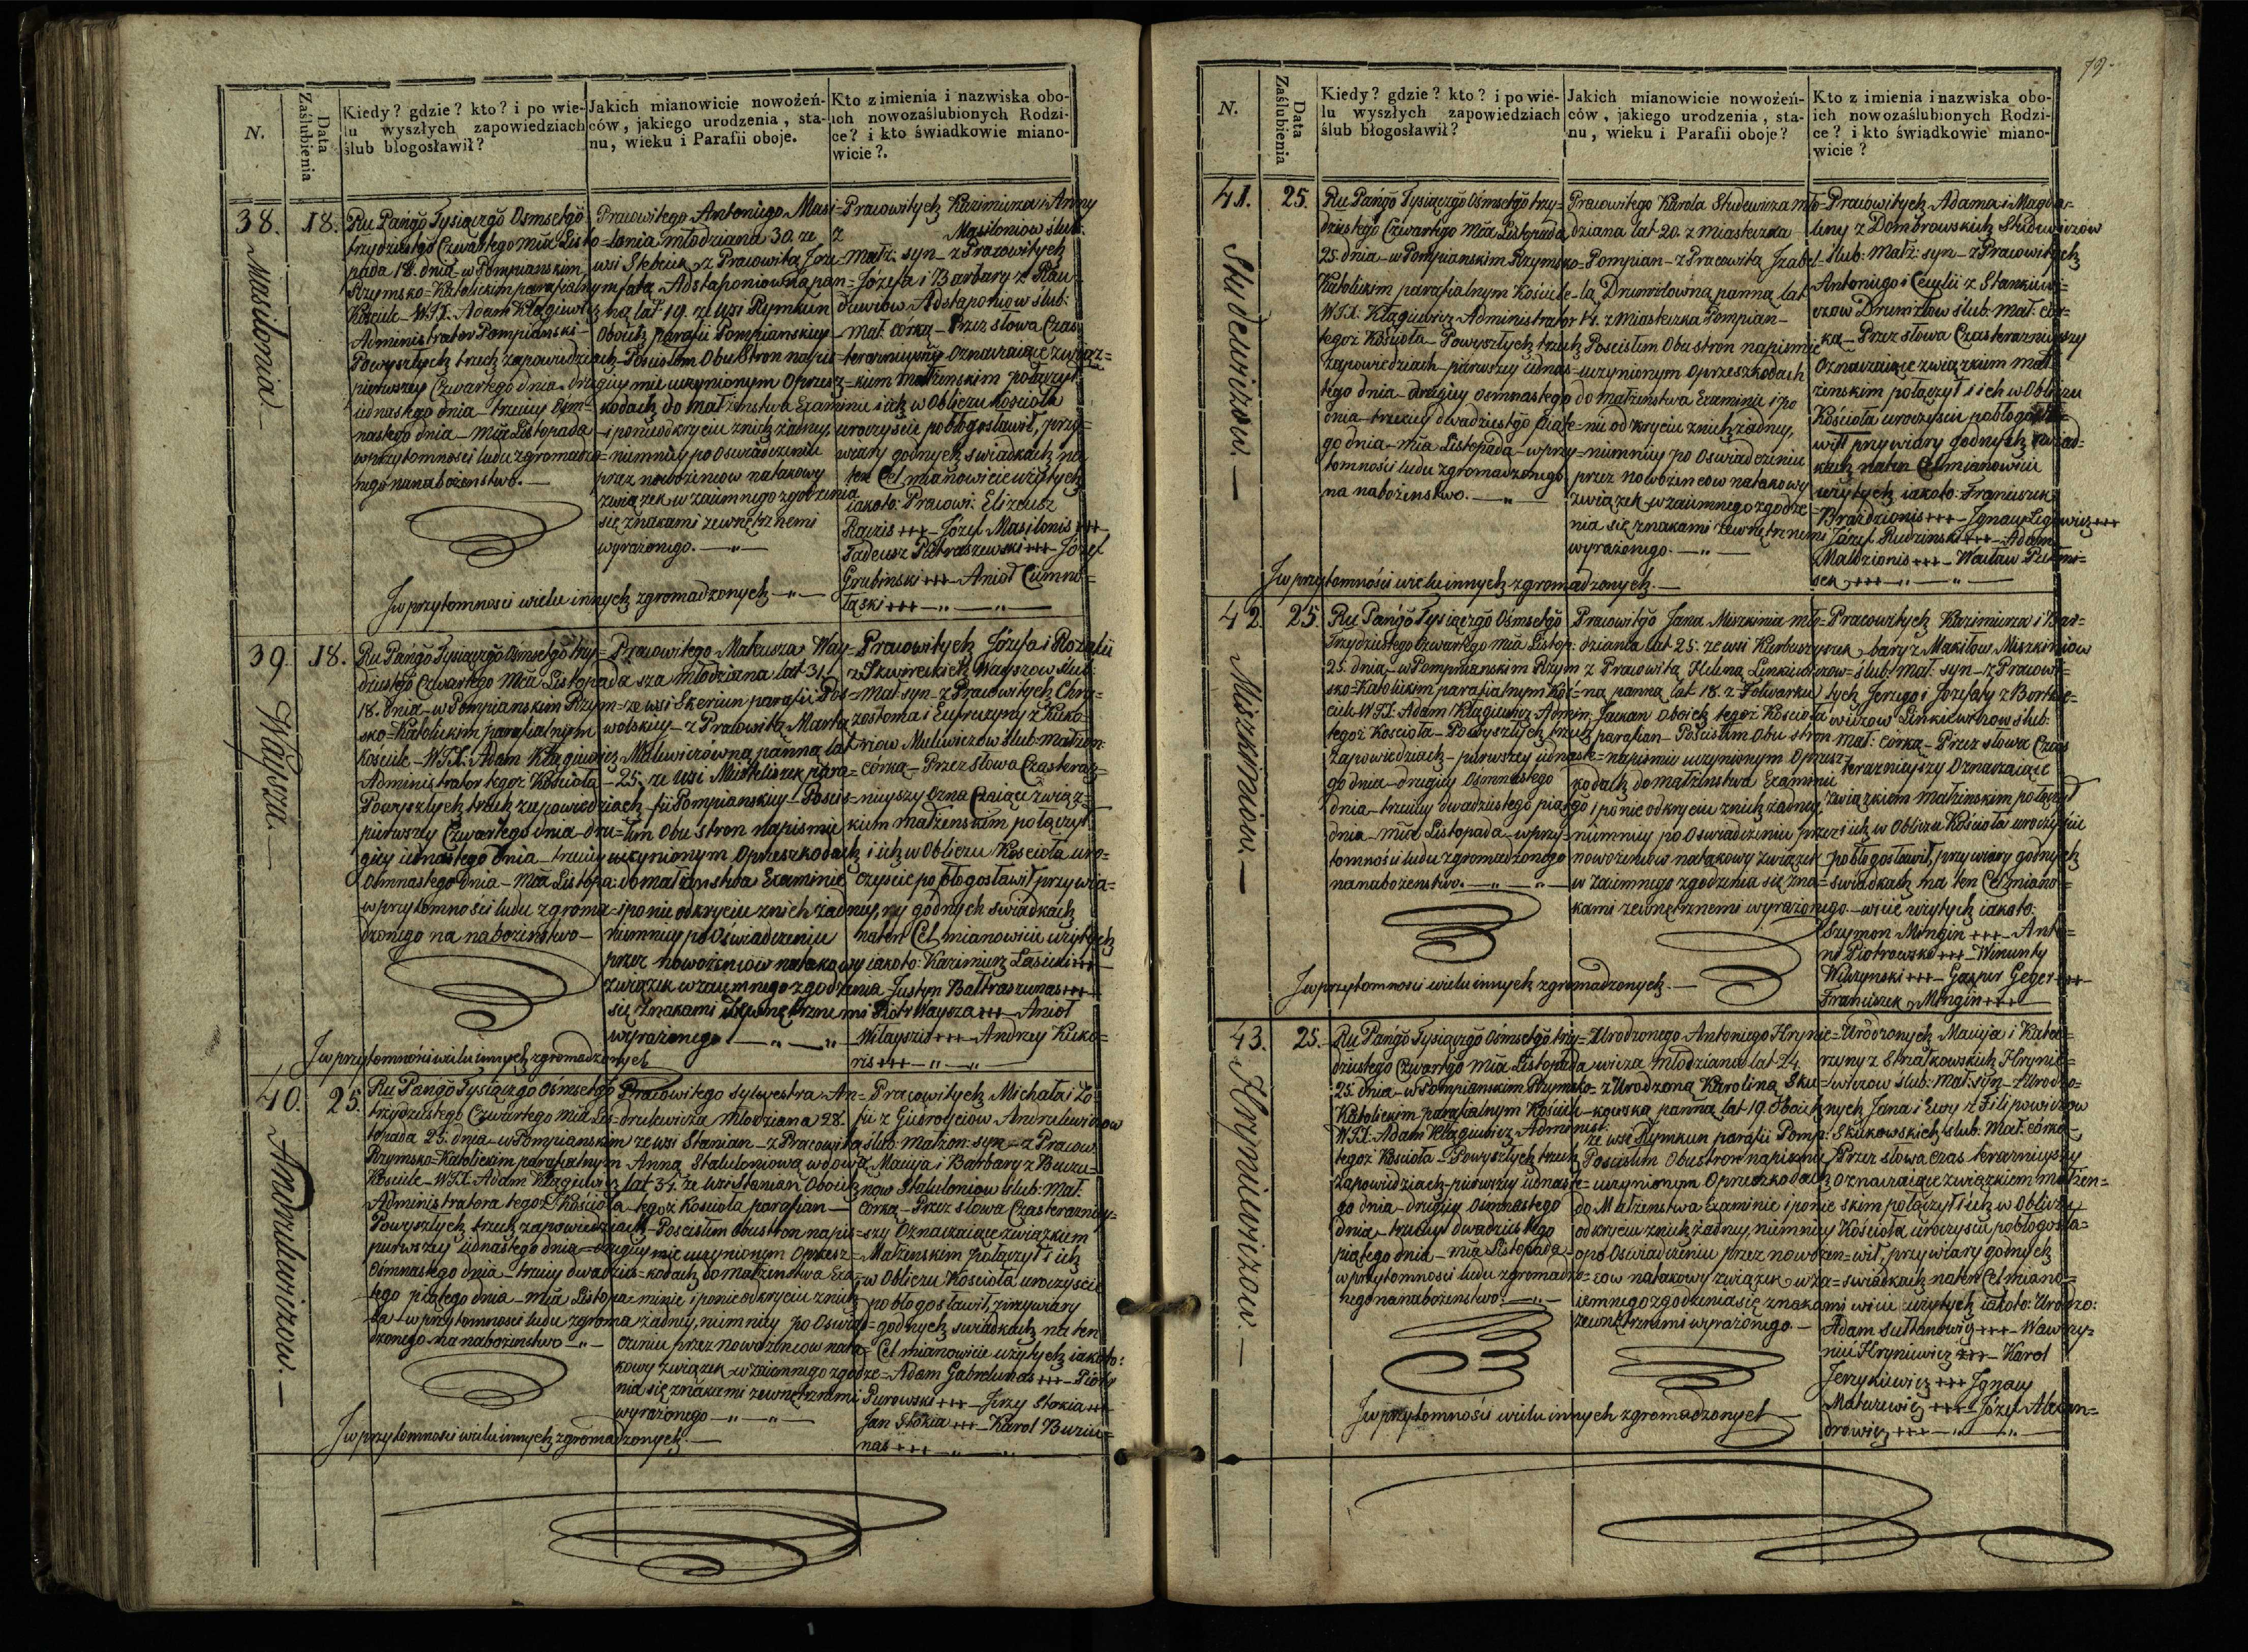 N.
Data Zaślubienia
Kiedy? gdzie? kto? i po wie-
lu wyszłych zapowiedziach
ślub błogosławił?
Jakich mianowicie nowożeń-
ców, jakiego urodzenia, sta-
nu, wieku i Parafii oboje.
Kto z imienia i nazwiska obo-
ich nowozaślubionych Rodzi-
ce? i kto świadkowie miano-
wicie?.
38.
Masilonia
18.
Ru Pańgo Tysiączgo Osmsetgo
trzydziestgo Czwartego mca Listo
pada 18. dnia w Pompianskim
Rzymsko=Katolickim parafialnym
Kościele WJX. Adam Kłagiewicz
Administrator Pompianski
Powyszłych trzech zapowiedziach
pierwszey Czwartego dnia drugiey
iednastego dnia trzeciey Ośm=
nastego dnia mca Listopada
w przytomności ludu zgromadzo
nego na nabożeństwo.
Pracowitego Antoniego Masi=
lonia młodziana 30. ze
wsi Stebiuk z Pracowitą Joze=
fatą Adstaponiowną pan=
ną lat 19. ze wsi Rymkun
Oboich parafii Pompianskiey
Poscisłem Obu Stron napis=
mie uczynionym Oprzesz=
kodach do małżenstwa Examinie
i po nieodkryciu z nich żadney,
niemniey po Oswiadczeniu
przez nowożencow na takowy
związek wzaiemnego zgodzenia
się znakami zewnętrznemi
wyrażonego.
Pracowitych Kazimierza i Anny
z Masiloniow ślub:
małż: syn z Pracowitych
Józefa i Barbary z Rau=
duwiow Adstaponiow ślub:
mał. córką Przez słowa Czas
terazniejszy Oznaczaiące związ=
kiem małżenskim połączył
i ich w Obliczu Kościoła
uroczyscie pobłogosławił, przy
wiary godnych swiadkach na
ten Cel mianowicie użytych
iakoto: Pracowi: Elizeusz
Raczis +++ Józef Masilonis +++
Tadeusz Pietraszewski +++ Józef
Grubinski +++ Anioł Ciemno=
łąski +++
I w przytomności wielu innych zgromadzonych.
39.
Waysza
18.
Ru Pańgo Tysiączgo Ośmsetgo trzy=
dziestgo Czwartego Mca Listopada
18. dnia w Pompianskim Rzym=
sko=Katolickim parafialnym
Kościele WJX: Adam Kłagiewicz
Administrator tegoż Kościoła
Powyszłych trzech zapowiedziach
pierwszey Czwartego dnia dru=
giey iednastego dnia trzeciey
Ośmnastego dnia Mca Listopa:
w przytomności ludu zgroma=
dzonego na nabożeństwo
Pracowitego Mateusza Way=
sza młodziana lat 31.
ze wsi Skerian parafii Pos=
wolskiey z Pracowitą Martą
Malewiczówną panną lat
25. ze wsi Muskliszek para=
fii Pompianskiey Poscis=
łem Obu stron napismie
uczynionym Oprzeszkodach
do małżenstwa Examinie
i po nieodkryciu z nich żadney,
niemniey po Oświadczeniu
przez nowożencow na takowy
związek wzaiemnego zgodzenia
się znakami zewnętrznemi
wyrażonego
Pracowitych Józefa i Rozalii
z Skwireckich Wayszow ślub:
mał: syn z Pracowitych Chry=
zostoma i Eufrozyny z Kuko=
riow Malewiczow ślub: małżon:
córką Przez słowa Czas teraz=
nieyszy Oznaczaiące związ=
kiem małżenskim połączył
i ich w Obliczu Kościoła uro=
czyscie pobłogosławił przy wia=
ry godnych swiadkach
na ten Cel mianowicie użytych
iakoto: Kazimierz Lasicki +++
Justyn Baltraszunas +++
Piotr Waysza +++ Anioł
Witayszis +++ Andrzey Kuko=
ris +++
I w przytomności wielu innych zgromadzonych
40.
Andrulewiczow
25.
Ru Pańgo Tysiączgo Ośmsetgo
trzydziestego Czwartego mca Lis=
topada 25. dnia w Pompianskim
Rzymsko=Katolickim parafialnym
Kościele WJX. Adam Kłagiewicz
Administratora tegoż Kościoła
Powyszłych trzech zapowiedziach
pierwszey iednastego dnia drugiey
Ośmnastego dnia trzeciey dwadzies=
tego piątego dnia mca Listopa=
da w przytomności ludu zgroma
dzonego na nabożenstwo
Pracowitego Sylwestra An=
drulewicza młodziana 28.
ze wsi Staniun z Pracowitą
Anną Staluleniową wdową
lat 34. ze wsi Staniun Oboich
tegoż Kościoła parafian
Poscisłem obustron napis=
mie uczynionym Oprzesz=
kodach do małżenstwa Exa=
minie i po nieodkryciu z nich
żadney, niemniey po Oswiad=
czeniu przez nowożencow nata=
kowy związek wzaiemnego zgodze=
nia się znakami zewnętrznemi
wyrażonego
Pracowitych Michała i Zo=
fii z Giedroyciow Andrulewiczow
ślub: małżon: syn z Pracow.
Macieja i Barbary z Buzu=
now Staluloniow ślub: mał.
Córką Przez słowa Czas teraznie=
szy Oznaczaiące związkiem
Małżenskim połączył i ich
w Obliczu Kościoła uroczyscie
pobłogosławił, przy wiary
godnych swiadkach na ten
Cel mianowicie użytych iakoto:
Adam Gabrelunas +++ Piotr
Purowski +++ Jerzy Stokia +++
Jan Stokia +++ Karol Buziu=
nas +++
I w przytomności wielu innych zgromadzonych.
79.
N.
Data Zaślubienia
Kiedy? gdzie? kto? i po wie-
lu wyszłych zapowiedziach
ślub błogosławił?
Jakich mianowicie nowożeń-
ców, jakiego urodzenia, sta-
nu, wieku i Parafii oboje?
Kto z imienia i nazwiska obo-
ich nowozaślubionych Rodzi-
ce? i kto świadkowie miano-
wicie?
41.
Studewiczow
25.
Ru Pańgo Tysiączgo Osmsetgo trzy=
dziestego Czwartego Mca Listopada
25. dnia w Pompianskim Rzymsko=
Katolickim parafialnym Kościele
WJX. Kłagiewicz Administrator
tegoż Kościoła Powyszłych trzech
zapowiedziach pierwszey iednas=
tego dnia drugiey osmnastego
dnia trzeciey dwadziestgo piąte=
go dnia mca Listopada w przy=
tomności ludu zgromadzonego
na nabożenstwo.
Pracowitego Karola Studewicza mło=
dziana lat 20. z miasteczka
Pompian z Pracowitą Izabel=
lą Drumzdowną panną lat
14. z Miasteczka Pompian
Poscisłem Obu stron napismie
uczynionym Oprzeszkodach
do małżenstwa Examinie i po
nieodkryciu z nich żadney,
niemniey po Oswiadczeniu
przez nowożencow na takowy
związek wzaiemnego zgodze
nia się znakami zewnętrznemi
wyrażonego.
Pracowitych Adama i Magda=
leny z Dombrowskich Studewiczow
ślub: małż: syn z Pracowitych
Antoniego i Cecylii z Stankiew=
czow Drumzdow ślub: mał: cór=
ką Przez słowa Czas teraznieyszy
Oznaczaiące związkiem mał=
żenskim połączył i ich w Obliczu
Kościoła uroczyscie pobłogosła=
wił przy wiary godnych swiad=
kach na ten Cel mianowicie
użytych iakoto: Franciszek
Brazdzionis +++ Ignacy Legowicz +++
Józef Rudzinski +++ Adam
Maldzionis +++ Wacław Putmo=
sen +++
I w przytomności wielu innych zgromadzonych.
42.
Miszkiniow
25.
Ru Pańgo Tysiączgo Ośmsetgo
Trzydziestego Czwartego mca Listop:
25. dnia w Pompianskim Rzym
sko=Katolickim parafialnym Koś=
ciele WJX. Adam Kłagiewicz Admin:
tegoż Kościoła Powyszłych trzech
zapowiedziach pierwszey iednaste=
go dnia drugiey Osmnastego
dnia trzeciey dwadziestego piątego
dnia mca Listopada w przy=
tomności ludu zgromadzonego
na nabożenstwo.
Pracowitgo Jana Miszkinia mło=
dziana lat 25. ze wsi Kurbuszyszek
z Pracowitą Heleną Linkiewiczow=
ną panną lat 18. z Folwarku
Jackan oboich tegoż Kościoła
parafian Poscisłem Obu stron
napismie uczynionym Oprzesz=
kodach do małżenstwa Examinie
i po nie odkryciu z nich żadney
niemniey po Oswiadczeniu przez
nowożencow na takowy związek
wzaiemnego zgodzenia się zna=
kami zewnętrznemi wyrażonego.
Pracowitych Kazimierza i Bar=
bary z Makiłow Miszkiniow
ślub: mał: syn z Pracowi=
tych Jerzego i Jozefaty z Bortke=
wiczow Linkiewiczow ślub:
mał: córką Przez słowa Czas
teraznieyszy Oznaczaiące
związkiem małżenskim połączył
i ich w Obliczu Kościoła uroczyscie
pobłogosławił, przy wiary godnych
swiadkach na ten Cel miano=
wicie użytych iakoto:
Szymon Mingin +++ Anto=
ni Piotrowski +++ Wincenty
Wilczynski +++ Gasper Geger +++
Franciszek Mingin +++
I w przytomności wielu innych zgromadzonych.
43.
Hryniewiczow
25.
Ru Pańgo Tysiączgo Ośmsetgo trzy=
dziestego Czwartgo Mca Listopada
25. dnia w Pompianskim Rzymsko=
Katolickim parafialnym Kościele
WJX. Adam Kłagiewicz Administ:
tegoż Kościoła Powyszłych trzech
zapowiedziach pierwszey iednaste=
go dnia drugiey Ośmnastego
dnia trzeciey dwadziestego
piątego dnia mca Listopada
w przytomności ludu zgromadzo=
nego na nabożenstwo.
Urodzonego Antoniego Hrynie=
wicza młodziana lat 24.
z Urodzoną Karoliną Sku=
kowską panną lat 19. Oboich
ze wsi Rymkun parafii Pomp:
Poscisłem Obu stron napismie
uczynionym Oprzeszkodach
do Małżenstwa Examinie i po nie
odkryciu z nich żadney, niemniey
po Oświadczeniu przez nowożen=
cow na takowy związek wza=
iemnego zgodzenia się znakami
zewnętrznemi wyrażonego.
Urodzonych Macieja i Kata=
rzyny z Strzałkowskich Hrynie=
wiczow ślub: mał: syn z Urodzo=
nych Jana i Ewy z Filipowiczow
Skukowskich ślub: mał: córką
Przez słowa czas teraznieyszy
Oznaczaiące związkiem małżen=
skim połączył i ich w Obliczu
Kościoła uroczyscie pobłogosła=
wił, przy wiary godnych
swiadkach na ten Cel miano=
wicie użytych iakoto: Urodzo:
Adam Sułtanowicz +++ Wawrzy=
niec Hryniewicz +++ Karol
Jerzykiewicz +++ Ignacy
Matusewicz +++ Józef Alexan=
drowicz +++
I w przytomności wielu innych zgromadzonych